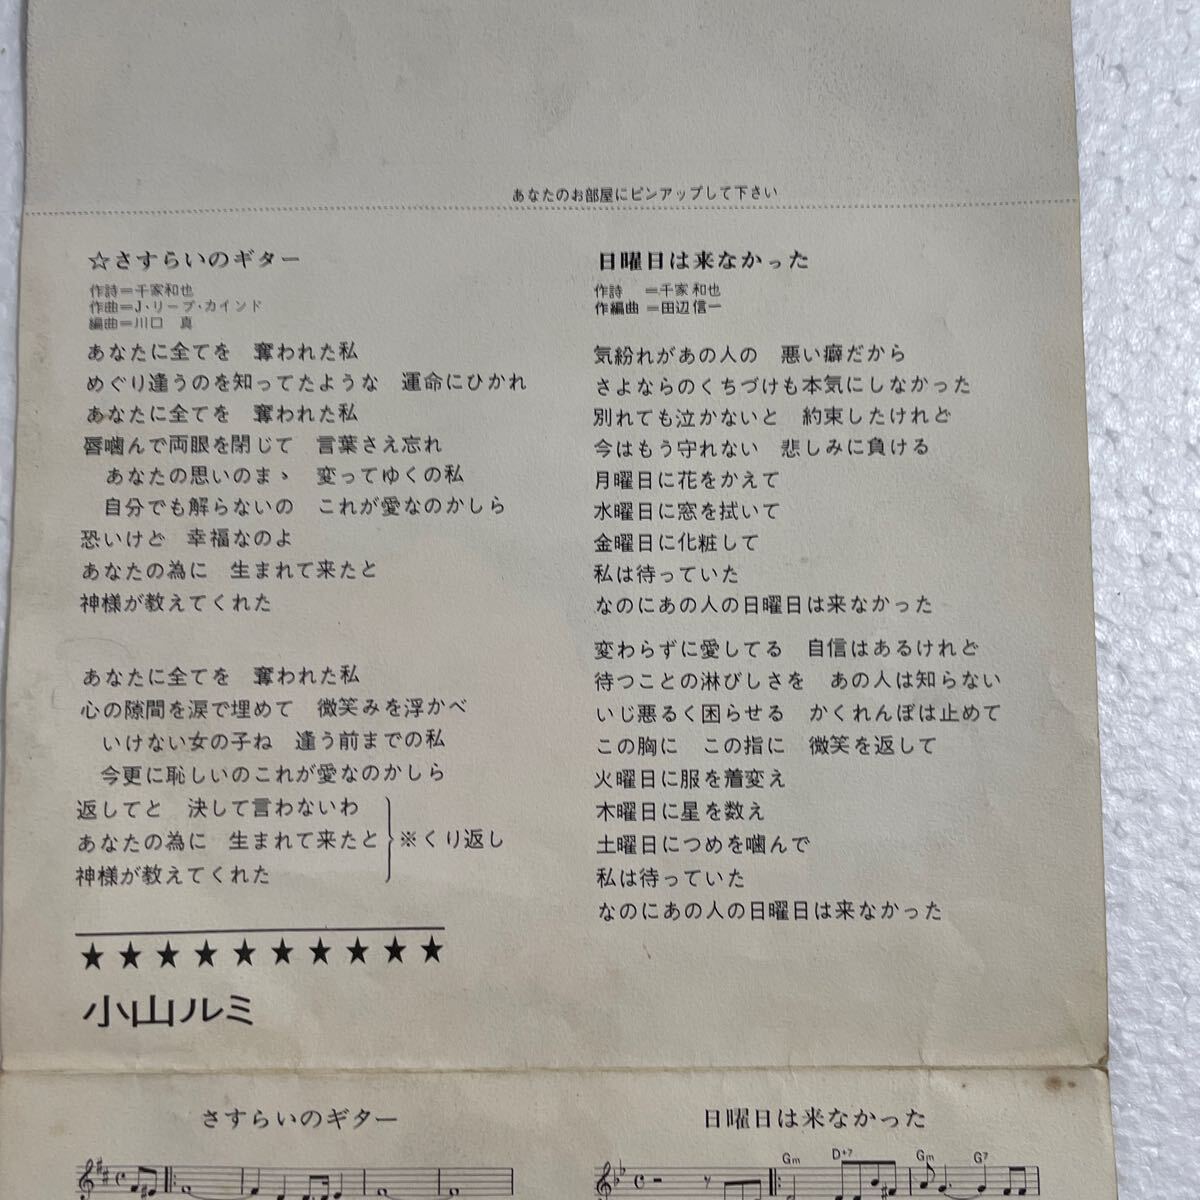 あなたのお部屋にピンアップして下さい
☆さすらいのギター
作詩＝千家和也
作曲＝J・リープ・カインド
編曲＝川口　真
あなたに全てを　奪われた私
めぐり逢うのを知ってたような　運命にひかれ
あなたに全てを　奪われた私
唇噛んで両眼を閉じて　言葉さえ忘れ
あなたの思いのまゝ　変ってゆくの私
自分でも解らないの　これが愛なのかしら
恐いけど　幸福なのよ
あなたの為に　生まれて来たと
神様が教えてくれた
あなたに全てを　奪われた私
心の隙間を涙で埋めて　微笑みを浮かべ
いけない女の子ね　逢う前までの私
今更に恥しいのこれが愛なのかしら
返してと　決して言わないわ
あなたの為に　生まれて来たと
神様が教えてくれた
※くり返し
★★★★★★★★★★
小山ルミ
日曜日は来なかった
作詩　＝千家和也
作編曲＝田辺信一
気紛れがあの人の　悪い癖だから
さよならのくちづけも本気にしなかった
別れても泣かないと　約束したけれど
今はもう守れない　悲しみに負ける
月曜日に花をかえて
水曜日に窓を拭いて
金曜日に化粧して
私は待っていた
なのにあの人の日曜日は来なかった
変わらずに愛してる　自信はあるけれど
待つことの淋びしさを　あの人は知らない
いじ悪るく困らせる　かくれんぼは止めて
この胸に　この指に　微笑を返して
火曜日に服を着変え
木曜日に星を数え
土曜日につめを噛んで
私は待っていた
なのにあの人の日曜日は来なかった
さすらいのギター
日曜日は来なかった
Gm D+7 Gm G7